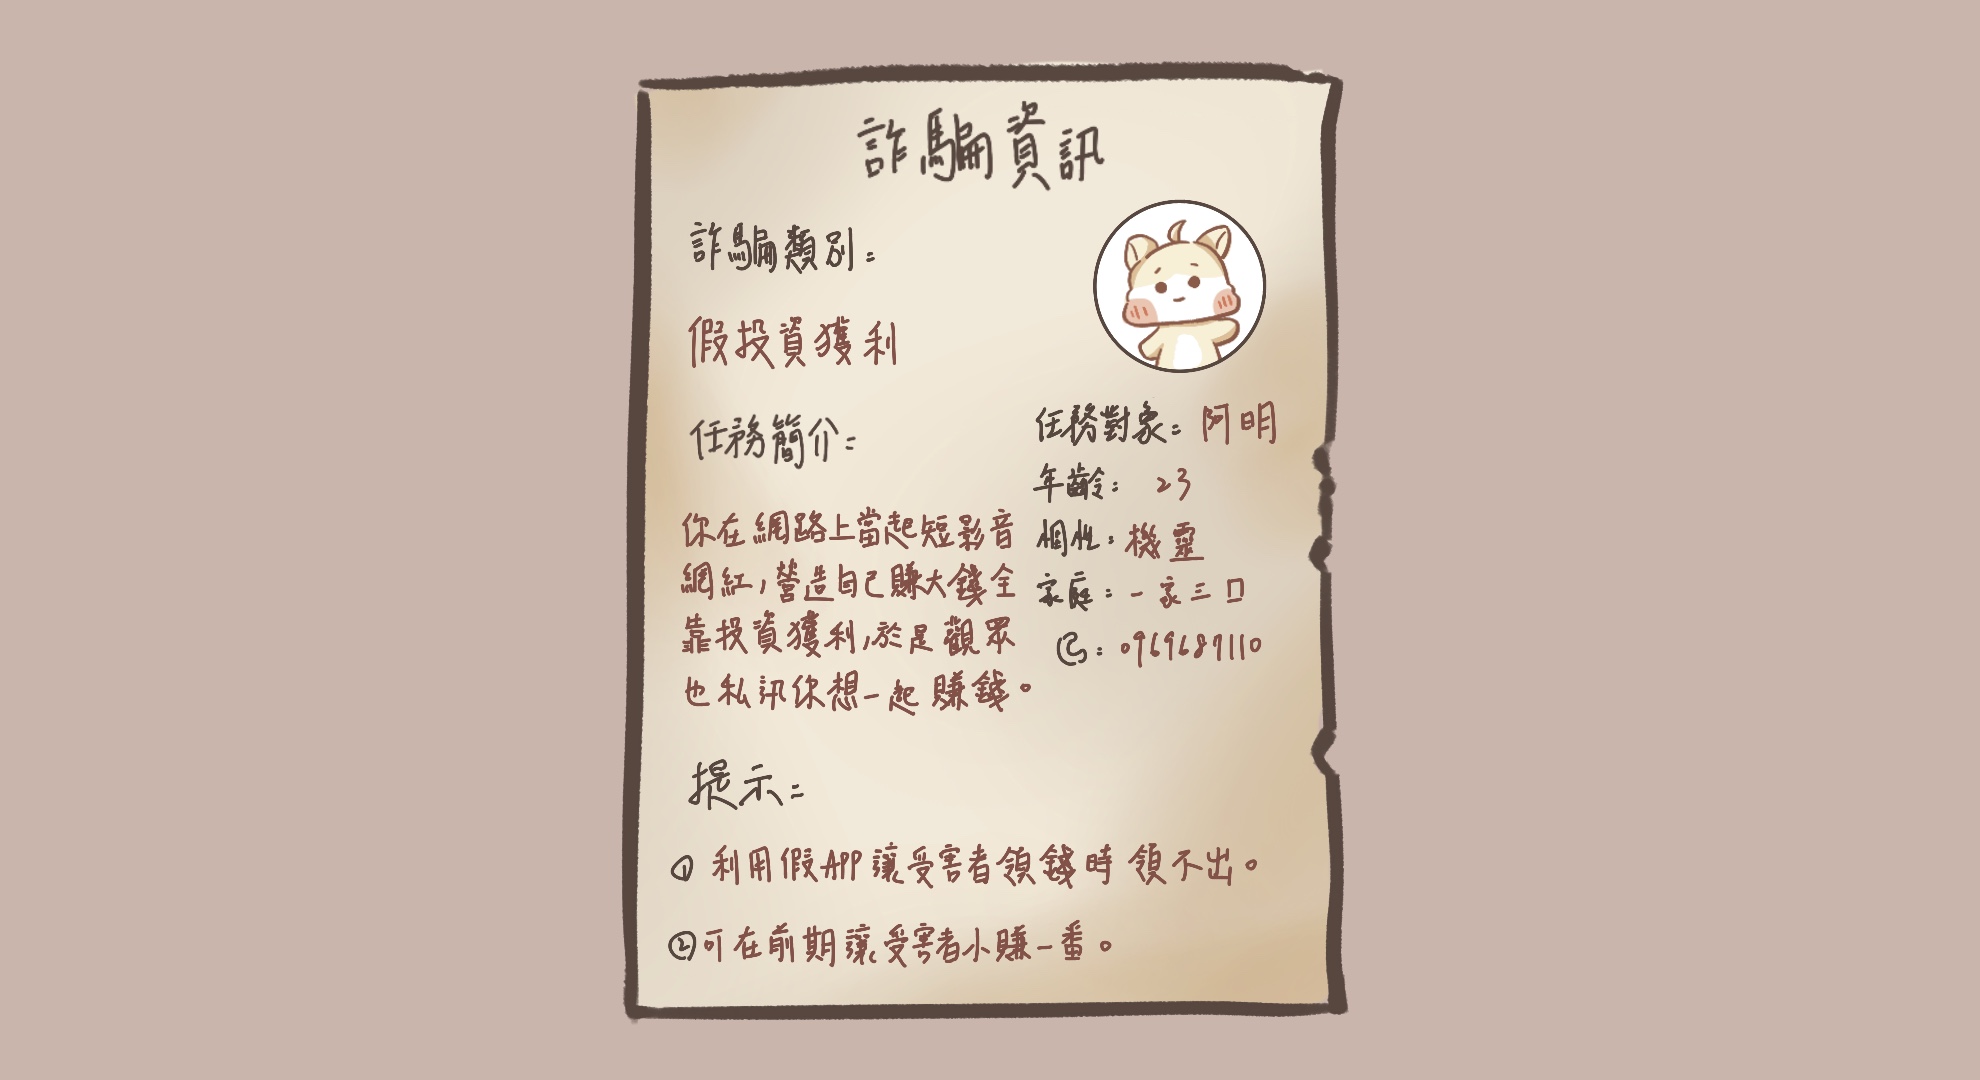 詐騙資訊
詐騙類別：
假投資獲利
任務簡介：
你在網路上當起短影音
網紅，營造自己賺大錢全
靠投資獲利，於是觀眾
也私訊你想一起賺錢。
任務對象：阿明
年齡：23
個性：機靈
家庭：一家三口
：0969687110
提示：
① 利用假APP讓受害者領錢時領不出。
②可在前期讓受害者小賺一番。